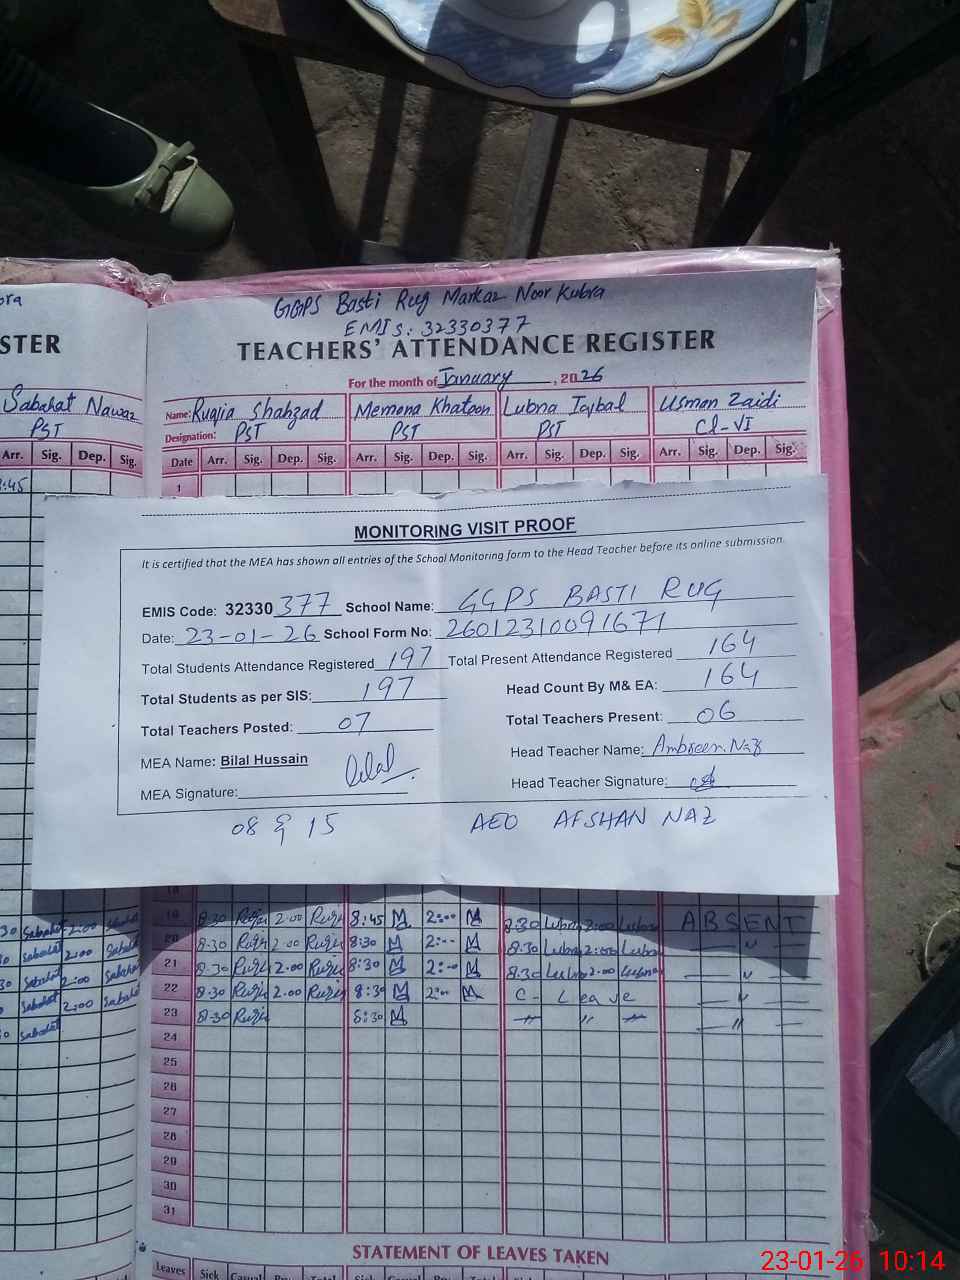 GGPS Basti Rug Markaz Noor Kubra
EMIS: 32330377
STER
TEACHERS' ATTENDANCE REGISTER
For the month of January, 2026
Sabahat Nawaz
PST
Name: Ruqjia Shahzad Memona Khatoon Lubna Iqbal Usman Zaidi
Designation: PST PST PST Cl-VI
Arr. Sig. Dep. Sig.
Date Arr. Sig. Dep. Sig. Arr. Sig. Dep. Sig. Arr. Sig. Dep. Sig. Arr. Sig. Dep. Sig.
:45
1
MONITORING VISIT PROOF
It is certified that the MEA has shown all entries of the School Monitoring form to the Head Teacher before its online submission.
EMIS Code: 32330377 School Name: GGPS BASTI RUG
Date: 23-01-26 School Form No: 26012310091671
Total Students Attendance Registered 197 Total Present Attendance Registered 164
Total Students as per SIS: 197 Head Count By M& EA: 164
Total Teachers Posted: 07 Total Teachers Present: 06
MEA Name: Bilal Hussain Head Teacher Name: Ambreen Naz
MEA Signature: Bilal Head Teacher Signature:
08 & 15 AEO AFSHAN NAZ
19 8:30 Ruqji 2:00 Ruqji 8:45 M 2:00 M 8:30 Lubna 2:00 Lubna ABSENT
20 8:30 Ruqji 2:00 Ruqji 8:30 M 2:-- M 8:30 Lubna 2:00 Lubna — " —
21 8:30 Ruqji 2.00 Ruqji 8:30 M 2:-- M 8:30 Lubna 2:00 Lubna — " —
22 8:30 Ruqji 2.00 Ruqji 8:30 M 2:00 M C- Leave — " —
23 8:30 Ruqji 8:30 M — " — — " —
24
25
26
27
28
29
30
31
STATEMENT OF LEAVES TAKEN
Leaves Sick Casual
23-01-26 10:14